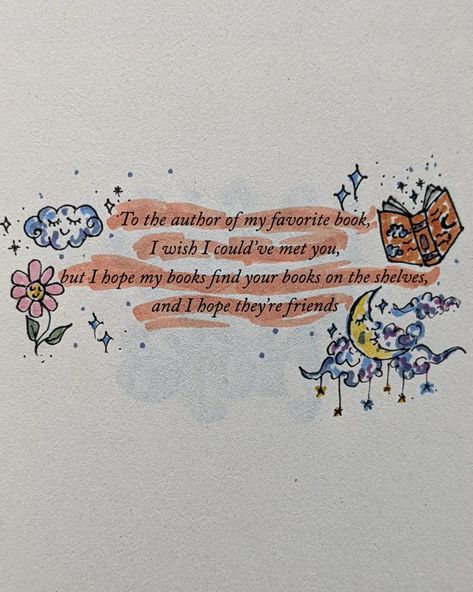 To the author of my favorite book,
I wish I could've met you,
but I hope my books find your books on the shelves,
and I hope they're friends